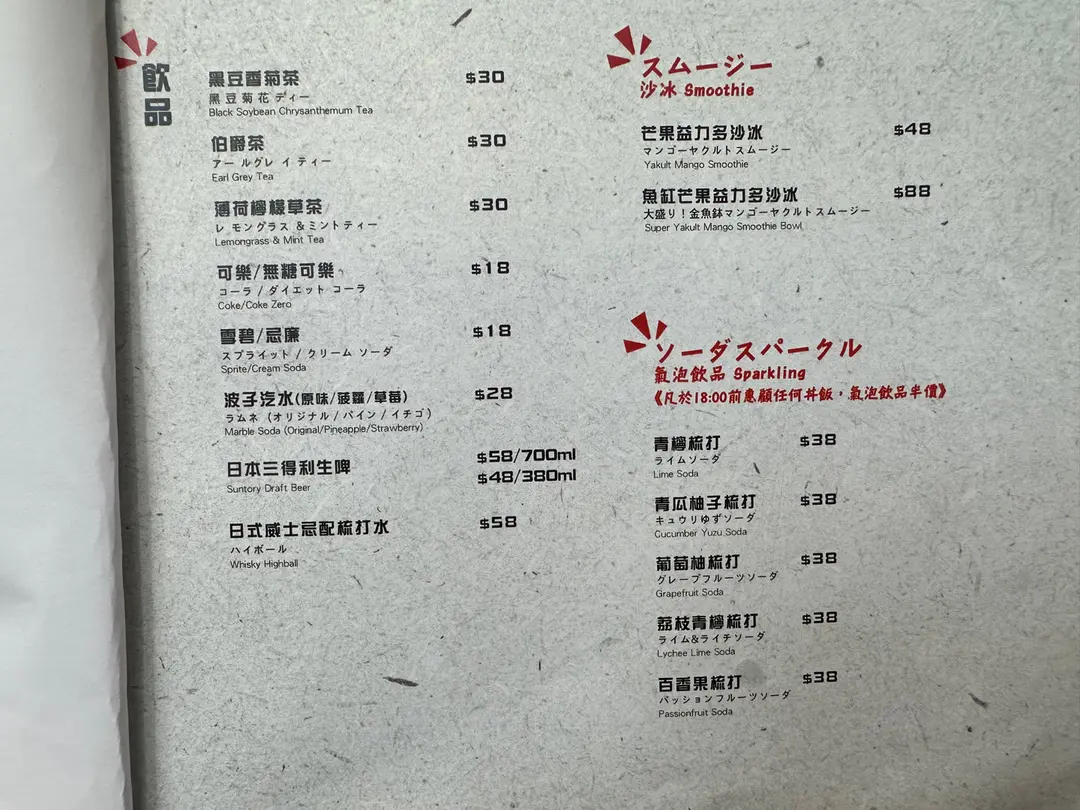 飲品
黑豆香菊茶 $30
黑豆菊花ディー
Black Soybean Chrysanthemum Tea
伯爵茶 $30
アールグレイティー
Earl Grey Tea
薄荷檸檬草茶 $30
レモングラス &ミントティー
Lemongrass & Mint Tea
可樂/無糖可樂 $18
コーラ / ダイエット コーラ
Coke/Coke Zero
雪碧/忌廉 $18
スプライット / クリーム ソーダ
Sprite/Cream Soda
波子汽水(原味/菠蘿/草莓) $28
ラムネ (オリジナル / パイン / イチゴ)
Marble Soda (Original/Pineapple/Strawberry)
日本三得利生啤 $58/700ml
Suntory Draft Beer $48/380ml
日式威士忌配梳打水 $58
ハイボール
Whisky Highball
スムージー
沙冰 Smoothie
芒果益力多沙冰 $48
マンゴーヤクルトスムージー
Yakult Mango Smoothie
魚缸芒果益力多沙冰 $88
大盛り!金魚鉢マンゴーヤクルトスムージー
Super Yakult Mango Smoothie Bowl
ソーダスパークル
氣泡飲品 Sparkling
《凡於18:00前惠顧任何丼飯,氣泡飲品半價》
青檸梳打 $38
ライムソーダ
Lime Soda
青瓜柚子梳打 $38
キュウリゆずソーダ
Cucumber Yuzu Soda
葡萄柚梳打 $38
グレープフルーツソーダ
Grapefruit Soda
荔枝青檸梳打 $38
ライム&ライチソーダ
Lychee Lime Soda
百香果梳打 $38
パッションフルーツソーダ
Passionfruit Soda